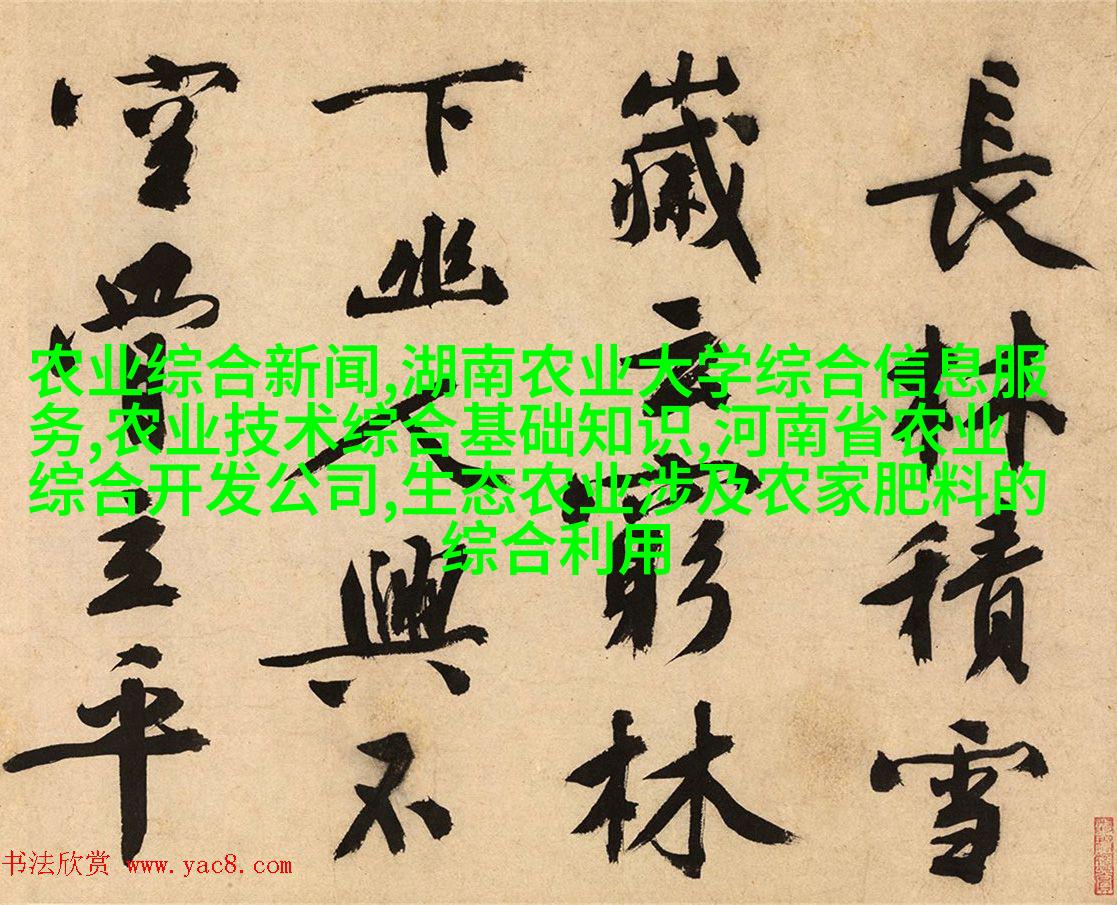 長林積雪
嵗云窮林
下幽人興不
立平
农业综合新闻,湖南农业大学综合信息服
务,农业技术综合基础知识,河南省农业
综合开发公司,生态农业涉及农家肥料的
综合利用
书法欣赏 www.yac8.com